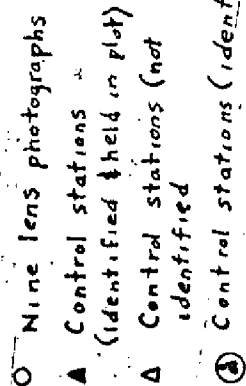 O Nine lens photographs
▲ Control stations
(identified & held in plot)
△ Control stations (not
identified
Control stations (ident